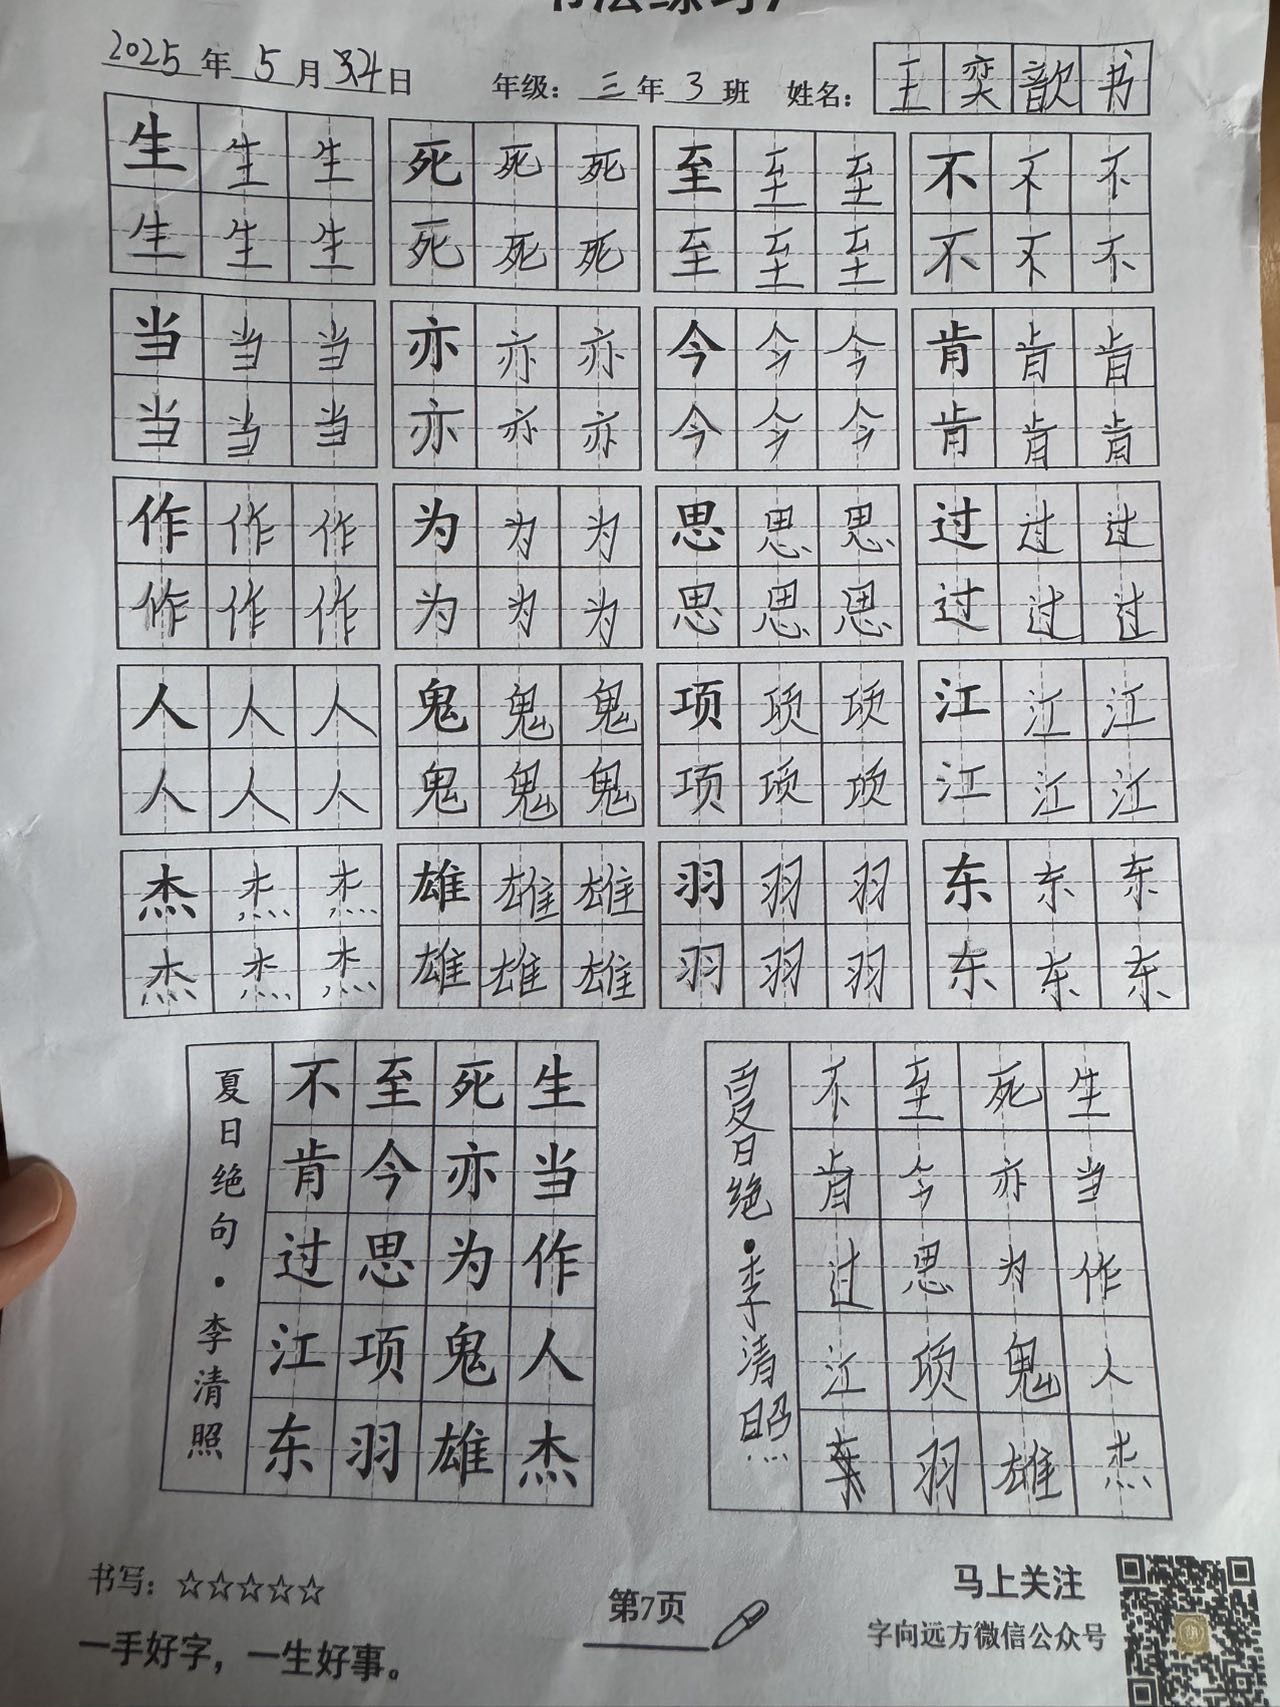 2025年5月34日 年级：三年3班 姓名：王奕歆书
生生生 死死死 至至至 不不不
生生生 死死死 至至至 不不不
当当当 亦亦亦 今今今 肯肯肯
当当当 亦亦亦 今今今 肯肯肯
作作作 为为为 思思思 过过过
作作作 为为为 思思思 过过过
人人人 鬼鬼鬼 项项项 江江江
人人人 鬼鬼鬼 项项项 江江江
杰杰杰 雄雄雄 羽羽羽 东东东
杰杰杰 雄雄雄 羽羽羽 东东东
生当作人杰
死亦为鬼雄
至今思项羽
不肯过江东
夏日绝句·李清照
生当作人杰
死亦为鬼雄
至今思项羽
不肯过江东
夏日绝·李清照
书写：☆☆☆☆☆
一手好字，一生好事。
第7页
马上关注
字向远方微信公众号